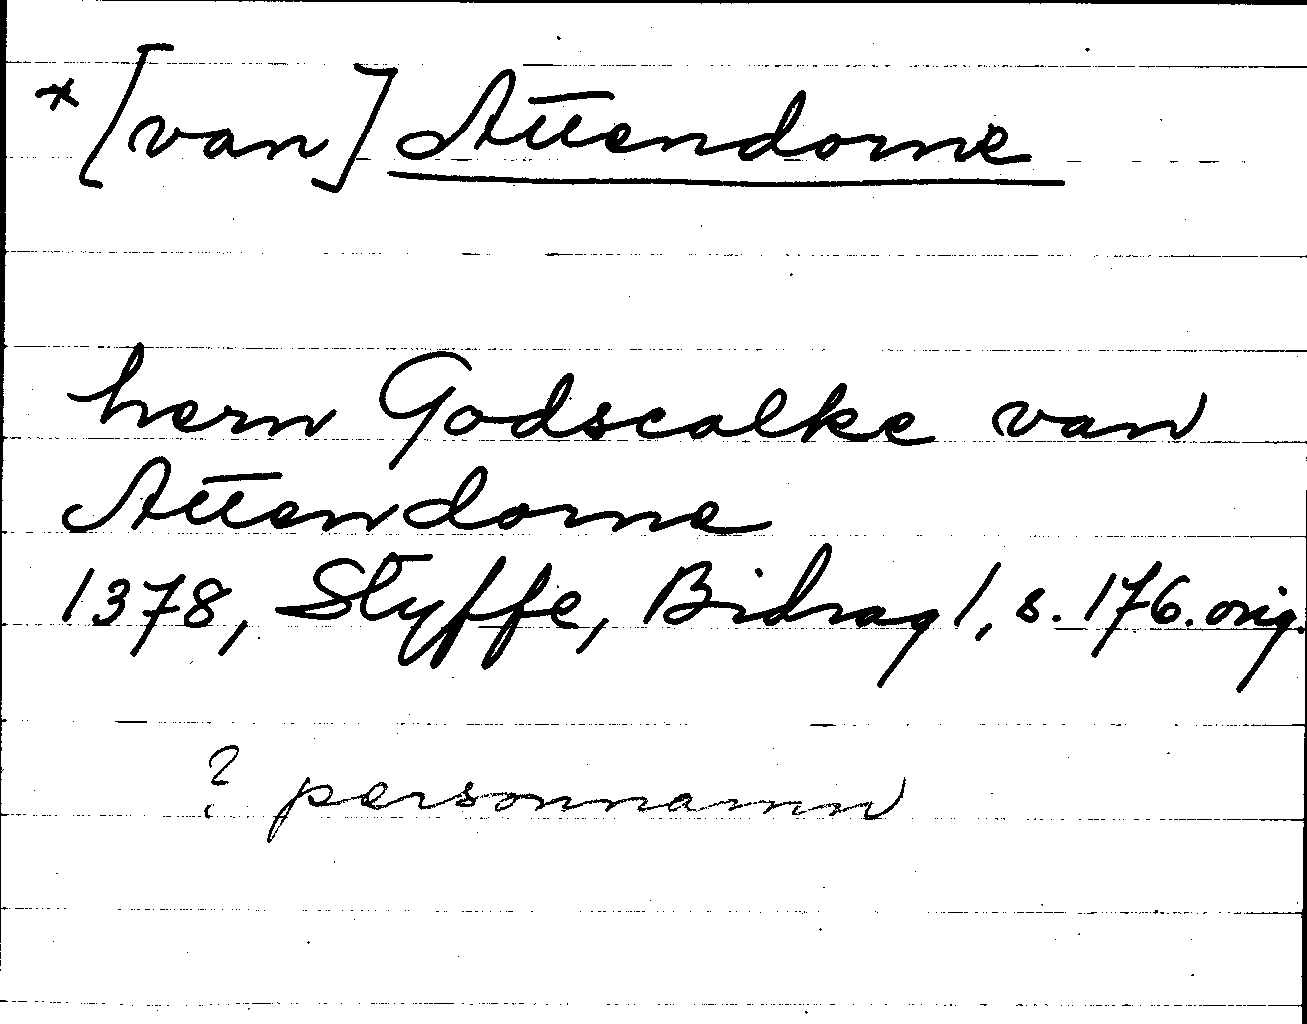 *[van] Attendorne
hern Godscalke van
Attendorne
1378, Styffe, Bidrag 1, s. 176. orig.
? personnamn